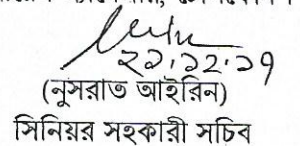 ২১.১২.১৭
(নুসরাত আইরিন)
সিনিয়র সহকারী সচিব